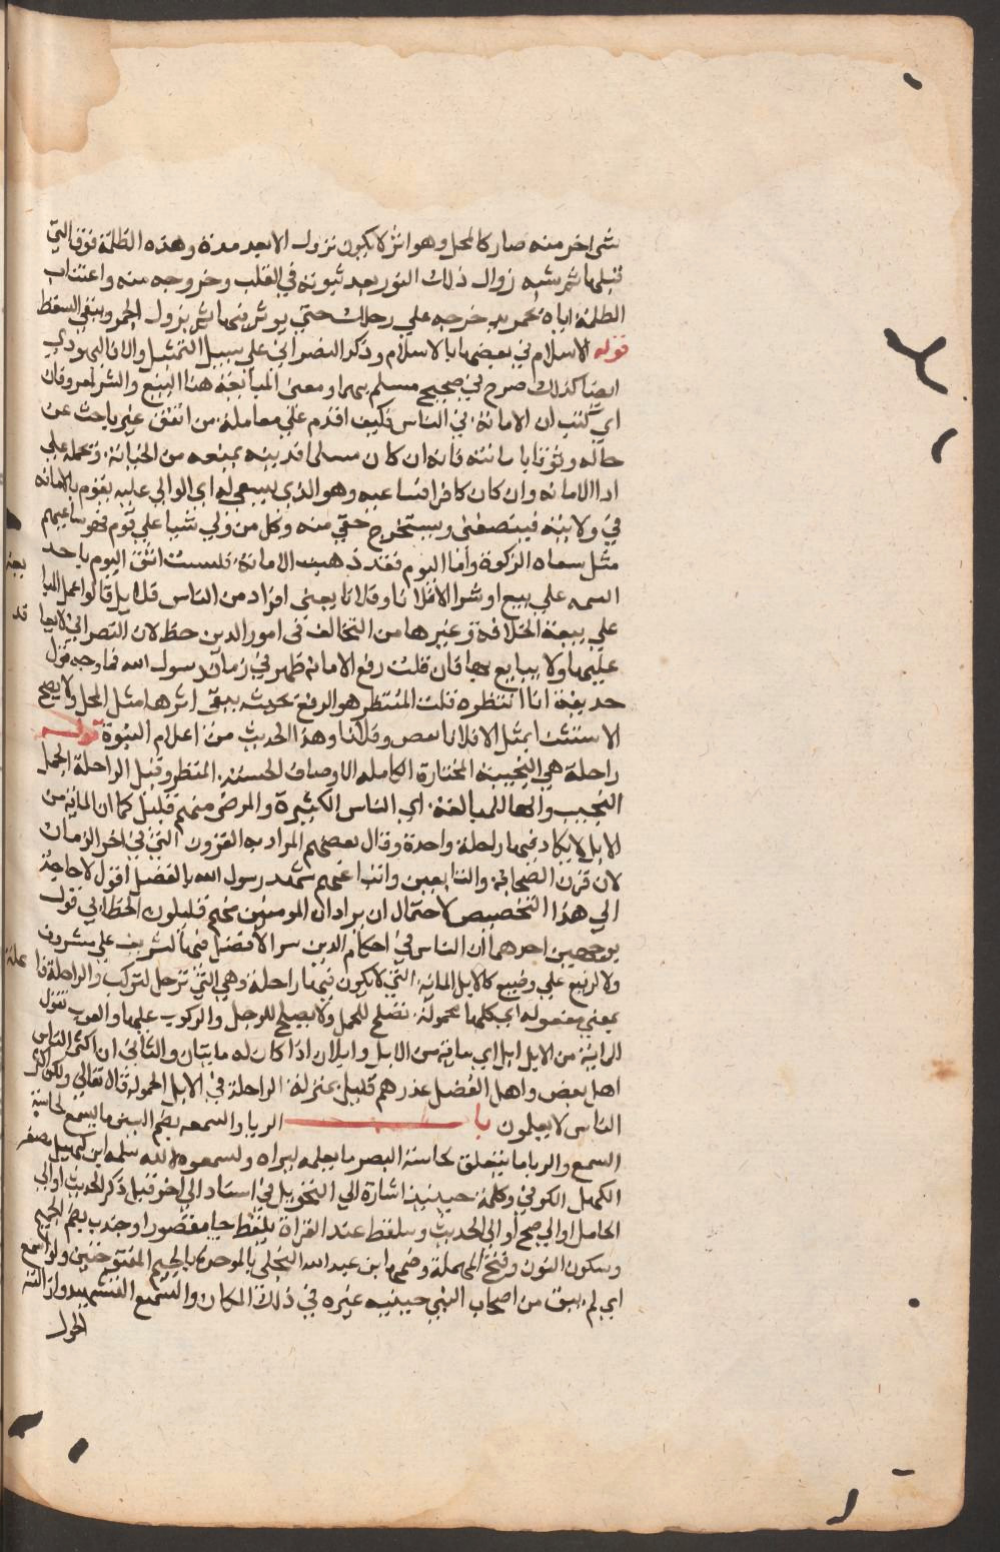 شي اخر منه صار كالمجل وهو اثر لا يكون نزول الا بعد مدة وهذه الظلمة فوق التي
قبلها ثم شبه زوال ذلك النور بعد ثبوته في القلب وخروجه منه واعتقاب
الظلمة اياه بجمر يدحرجه علي رجلك حتي يوثر فيها ثم يزول الجمر ويبقي النفط
قوله الاسلام في بعضها بالاسلام وذكر النصراني علي سبيل التمثيل والا فاليهودي
ايضا كذلك صرح في صحيح مسلم بهما ومعني المبايعة هنا البيع والشرا معروفان
اي كنت ان الامانة في الناس فكيف اقدم علي معاملة من اتفق غير باحث عن
حاله وثوقا بامانته فانه ان كان مسلما فدينه يمنعه من الخيانة ويحمله علي
ادا الامانه وان كان كافرا فساعيه وهو الذي يسعي له اي الوالي عليه يقوم بالامانه
في ولايته فينصفني ويستخرج حقي منه وكل من ولي شيا علي قوم فهو ساعيهم
مثل سعاه الزكوة واما اليوم فقد ذهبت الامانة فلست اثق اليوم باحد
ائتمنه علي بيع او شرا الا فلانا وفلانا يعني افراد من الناس قلايل قالوا حمل المبا
علي بيعة الخلافة وغيرها من التحالف في امور الدين خطا لان النصراني لا يعا
عليها ولا يبايع بها فان قلت رفع الامانه ظهر في زمان رسول الله فما وجه قول
حذيفة انا انتظره قلت المنتظر هو الرفع بحيث يبقي اثرها مثل المجل ولا يصح
الاستثنا بمثل الا فلانا وفلانا وهذا الحديث من اعلام النبوة قوله
راحلة هي النجيبة المختارة الكامله الاوصاف الحسنة المنظر وقيل الراحلة الجمل
النجيب والها للمبالغة اي الناس الكثيرة والمرضي منهم قليل كما ان الماية من
الابل لا يكاد فيها راحلة واحدة وقال بعضهم المراد به القرون التي في اخر الزمان
لان قرن الصحابة والتابعين واتباعهم شهد رسول الله بالفضل اقول لا حاجة
الي هذا التخصيص لاحتمال ان يراد ان المومنين منهم قليلون الخطابي قول
بوجهين احدهما ان الناس في احكام الدين سوا لا فضل فيها لشريف علي مشروف
ولا لرفيع علي وضيع كالابل الماية التي لا يكون فيها راحلة وهي التي ترحل لتركب والراحلة فا
بمعني مفعوله اي كلها حمولة تصلح للحمل ولا يصلح للرحل والركوب عليها والعرب تقول
للماية من الابل ابل اي ماية من الابل وابلان اذا كان له مايتان والثاني ان اكثر الناس
اهل نقص واهل الفضل عددهم قليل بمنزلة الراحلة في الابل الحمولة قال تعالي ولكن اكثر
الناس لا يعلمون باب الريا والسمعه بضم السين ما يسمع لحاسة
السمع والريا ما يتعلق بحاسة البصر ما يعلمه ليراه وليسمعوه سلمه ابن كهيل مصغر
الكهيل الكوفي وكلمة حينيذ اشارة الي التحويل في اسناد الي اخر قبل ذكر الحديث او الي
الحايل او الي صح او الي الحديث ويلفظ عند القراة بلفظ حا مقصورا وجندب بضم الجيم
وسكون النون وفتح المهملة وضمها ابن عبد الله البجلي بالموحدة بالجيم المفتوحتين ولم اسمع
اي لم يبق من اصحاب النبي حينيذ غيره في ذلك المكان والتسميع التشهير
الخول